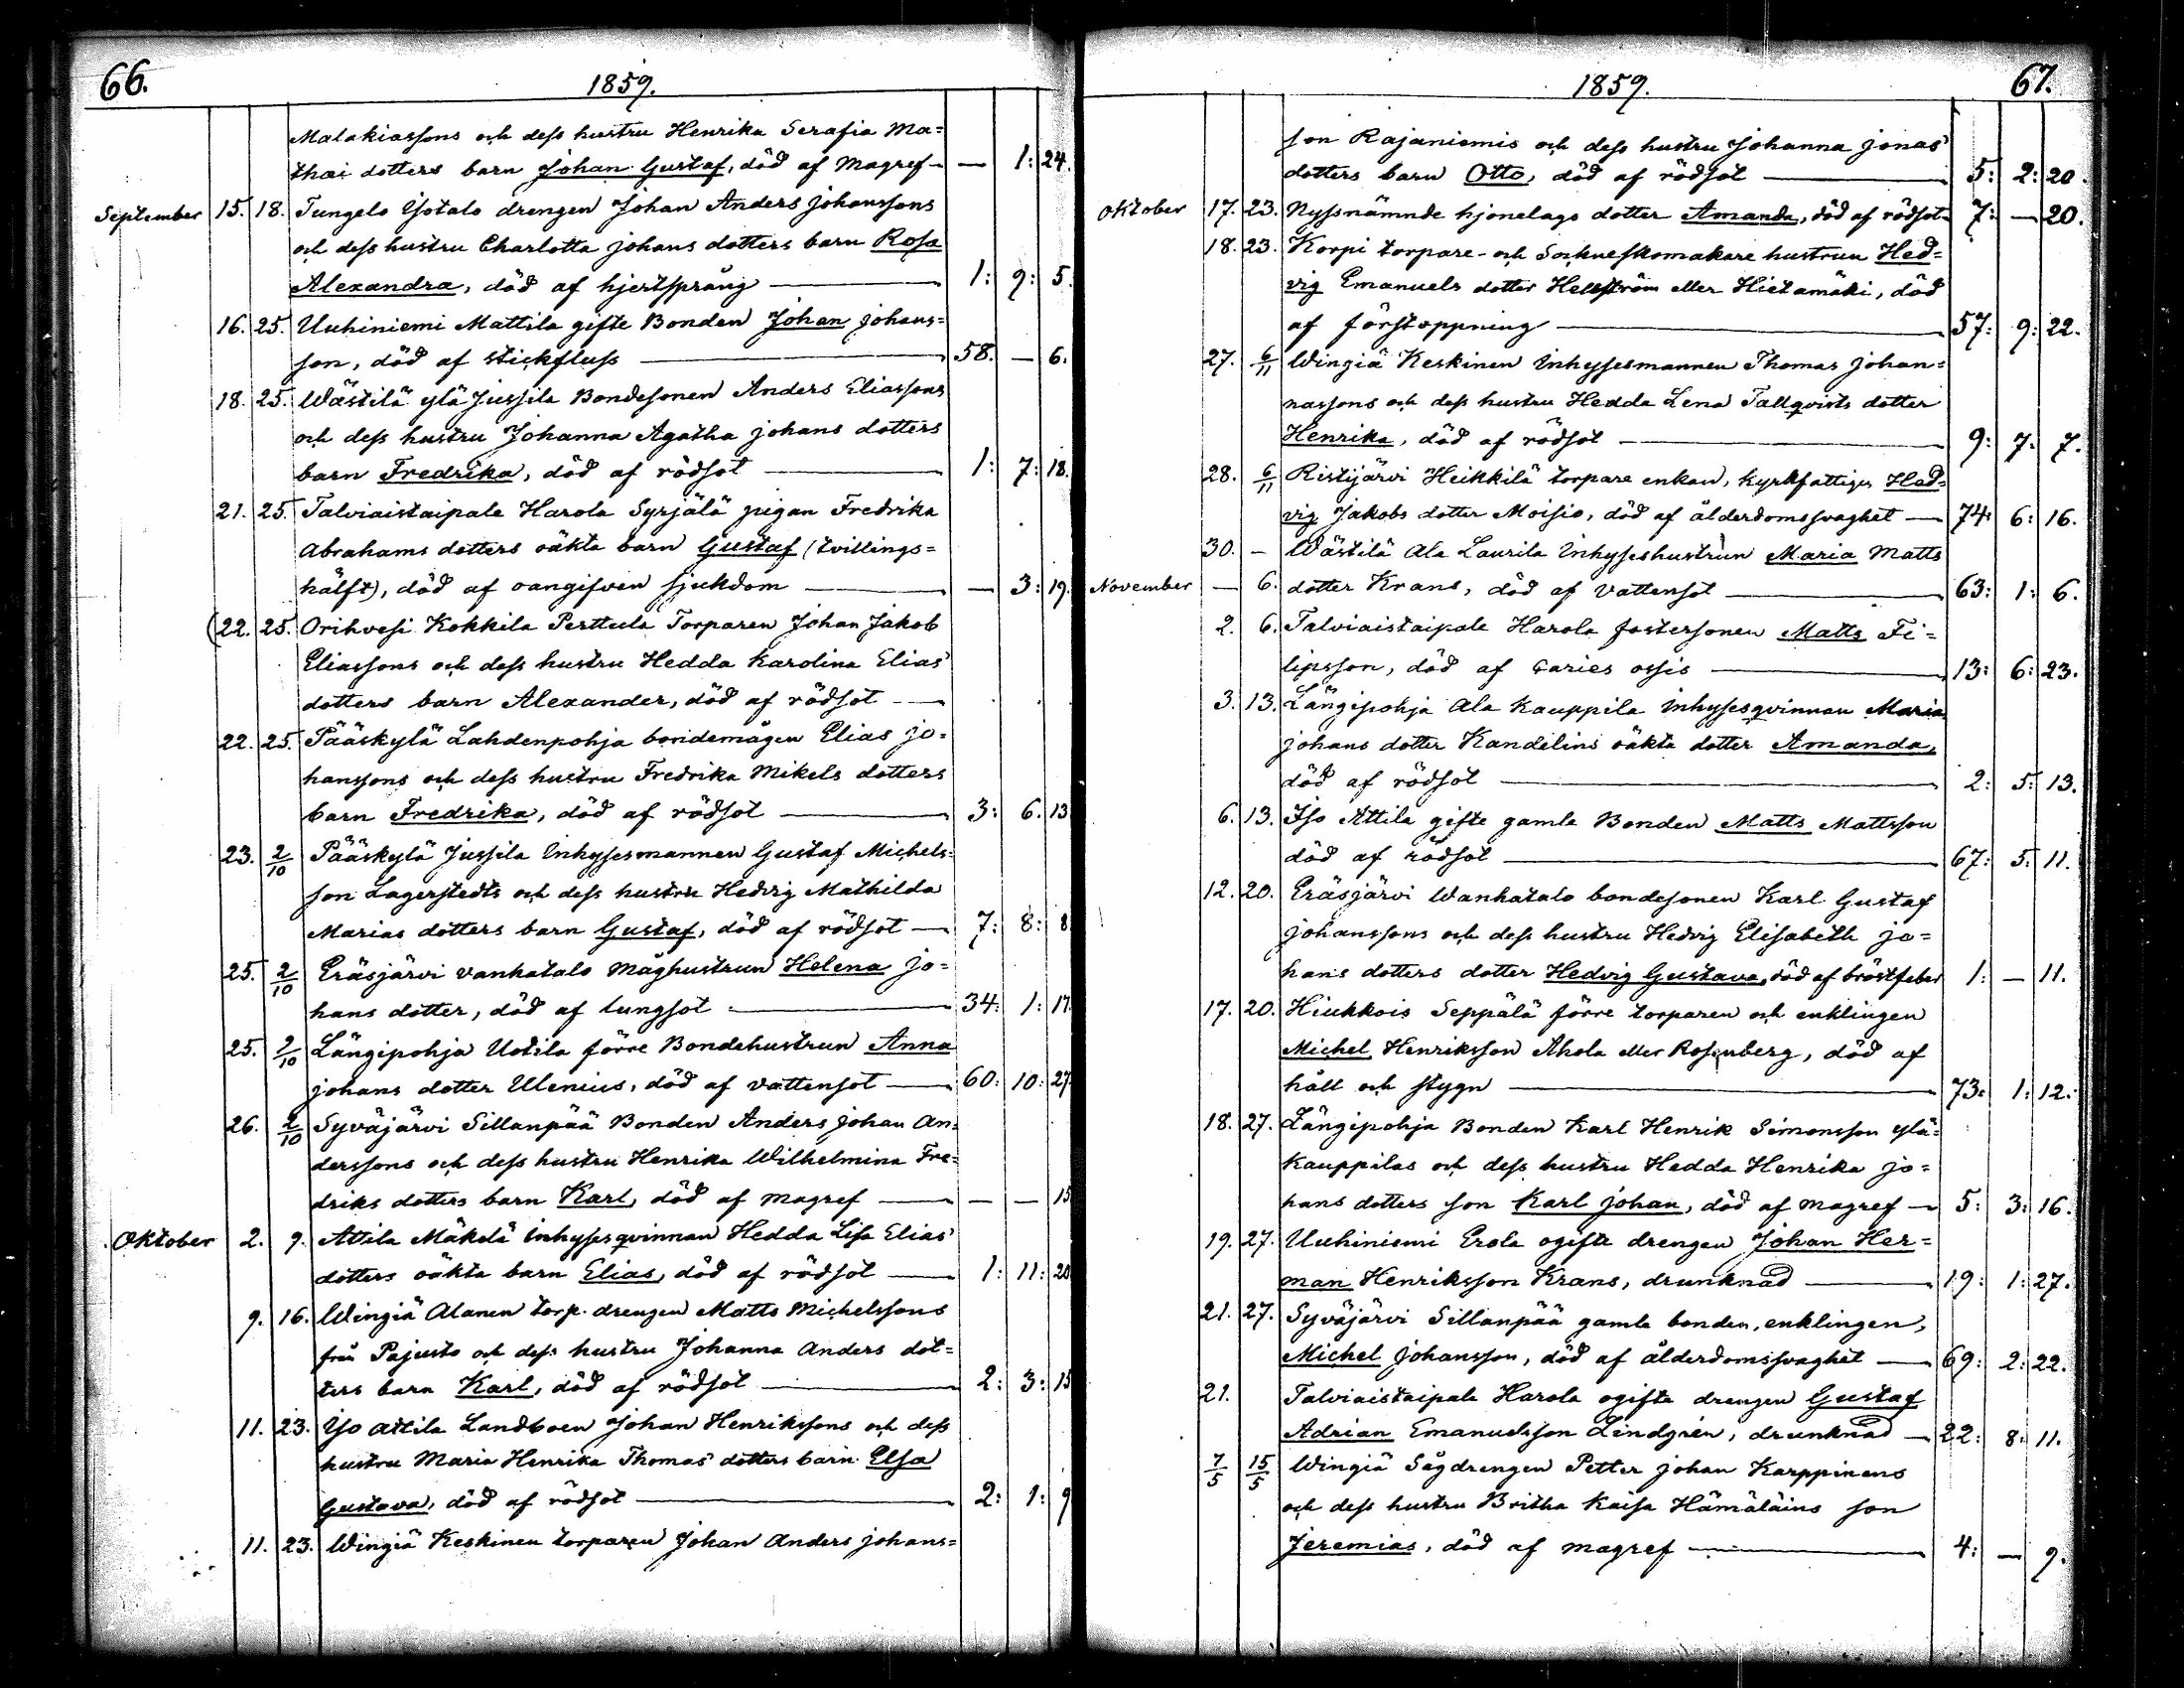 66.
1859.
Malakiassons och dess hustru Henrika Serafia Ma=
thai dotters barn Johan Gustaf, död af Magref — — 1: 24.
September 15. 18. Tungelo Yotalo drengen Johan Anders Johanssons
och dess hustru Charlotta Johans dotters barn Rosa
Alexandra, död af hjertsprång — 1: 9: 5.
16. 25. Uuhiniemi Mattila gifte Bonden Johan Johans=
son, död af stickfluss — 58. — 6.
18. 25. Wästilä ylä Jussila Bondesonen Anders Eliassons
och dess hustru Johanna Agatha Johans dotters
barn Fredrika, död af rödsot — 1: 7: 18.
21. 25. Talviaistaipale Harola Syrjälä pigan Fredrika
Abrahams dotters oäkta barn Gustaf (tvillings=
hälft), död af oangifven sjukdom — — 3: 19.
(22. 25. Orihvesi Kokkila Perttula Torparen Johan Jakob
Eliassons och dess hustru Hedda Karolina Elias
dotters barn Alexander, död af rödsot —
22. 25. Pääskylä Lahdenpohja bondemågen Elias Jo=
hanssons och dess hustru Fredrika Mikels dotters
barn Fredrika, död af rödsot — 3: 6. 13
23. 2/10 Pääskylä Jussila Inhysesmannen Gustaf Michels=
son Lagerstedts och dess hustru Hedvig Mathilda
Marias dotters barn Gustaf, död af rödsot — 7: 8: 8
25. 2/10 Eräsjärvi vanhatalo måghustrun Helena Jo=
hans dotter, död af lungsot — 34: 1: 17
25. 2/10 Längipohja Uotila förre Bondehustrun Anna
Johans dotter Ulenius, död af vattensot — 60: 10: 27.
26. 2/10 Syväjärvi Sillanpää Bonden Anders Johan An=
derssons och dess hustru Henrika Wilhelmina Fre=
driks dotters barn Karl, död af magref — — — 15
Oktober 2. 9. Attila Mäkelä Inhysesqvinnan Hedda Lisa Elias'
dotters oäkta barn Elias, död af rödsot — 1: 11: 20
9. 16. Wingiä Alanen torp. drengen Matts Michelssons
från Pajusto och dess hustru Johanna Anders dot=
ters barn Karl, död af rödsot — 2: 3: 15
11. 23. Yso Attila Landboen Johan Henrikssons och dess
hustru Maria Henrika Thomas dotters barn Elsa
Gustava, död af rödsot — 2: 1: 9
11. 23. Wingiä Keskinen torparen Johan Anders Johans=
1859.
67.
son Rajaniemis och dess hustru Johanna Jonas'
dotters barn Otto, död af rödsot — 5: 2: 20.
Oktober 17. 23. Nyssnämnde hjonelags dotter Amanda, död af rödsot — 7: — 20.
18. 23. Korpi torpare- och Sockneskomakare hustrun Hed=
vig Emanuels dotter Hellström eller Hietamäki, död
af förstoppning — 57: 9: 22.
27. 6/11 Wingiä Keskinen Inhysesmannen Thomas Johan=
nassons och dess hustru Hedda Lena Tallqvists dotter
Henrika, död af rödsot — 9: 7: 7.
28. 6/11 Ristijärvi Heikkilä torpare enkan, kyrkfattiga Hed=
vig Jakobs dotter Moisio, död af ålderdomssvaghet — 74: 6: 16.
30. — Wästilä Ala Laurila Inhyseshustrun Maria Matts
November — 6. dotter Krans, död af vattensot — 63: 1: 6.
2. 6. Talviaistaipale Harola fostersonen Matts Fi=
lipsson, död af Caries ossis — 13: 6: 23.
3. 13. Längipohja Ala Kauppila Inhysesqvinnan Maria
Johans dotter Kandelins oäkta dotter Amanda,
död af rödsot — 2: 5: 13.
6. 13. Iso Attila gifte gamle Bonden Matts Mattsson
död af rödsot — 67: 5: 11.
12. 20. Eräsjärvi Wanhatalo bondesonen Karl Gustaf
Johanssons och dess hustru Hedvig Elisabeth Jo=
hans dotters dotter Hedvig Gustava, död af bröstfeber 1: — 11.
17. 20. Hiukkois Seppälä förre torparen och enklingen
Michel Henriksson Ahola eller Rosenberg, död af
håll och stygn — 73: 1: 12.
18. 27. Längipohja Bonden Karl Henrik Simonsson ylä=
Kauppilas och dess hustru Hedda Henrika Jo=
hans dotters son Karl Johan, död af magref — 5: 3: 16.
19. 27. Uuhiniemi Erola ogifte drengen Johan Her=
man Henriksson Krans, drunknad — 19: 1: 27.
21. 27. Syväjärvi Sillanpää gamle bonden, enklingen,
Michel Johansson, död af ålderdomssvaghet — 69: 2: 22.
21. Talviaistaipale Harola ogifte drengen Gustaf
Adrian Emanuelsson Lindgrén, drunknad — 22: 8: 11.
7/5 15/5 Wingiä Sågdrengen Petter Johan Karppinens
och dess hustru Britha Kaisa Hämäläins son
Jeremias, död af magref — 4: — 9.